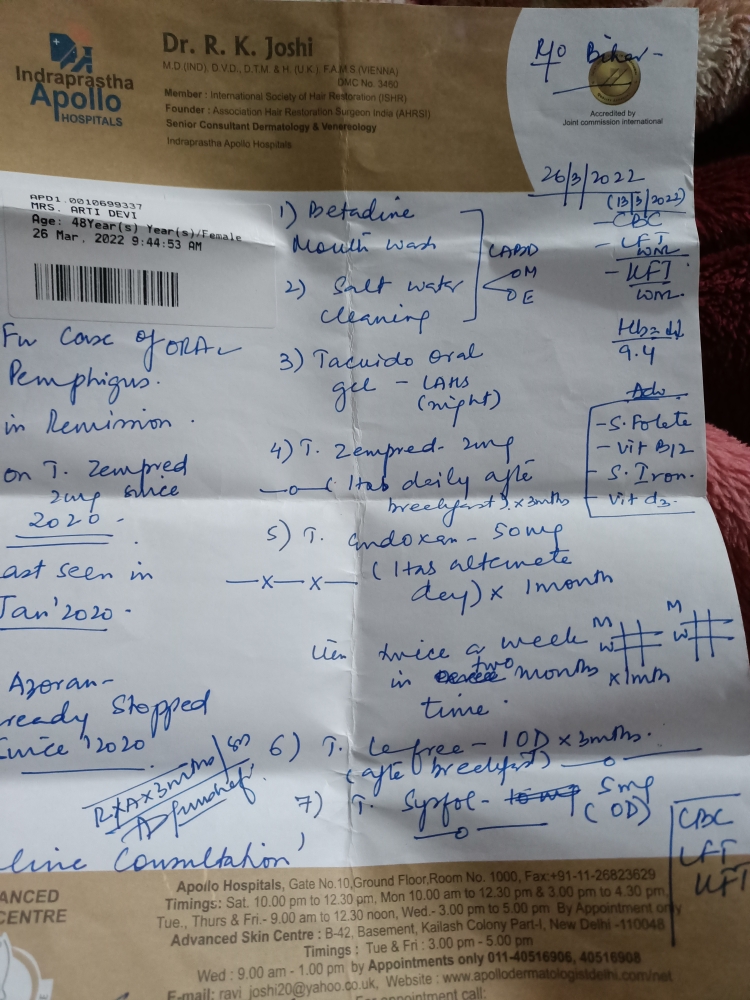 Indraprastha
Apollo
HOSPITALS
Dr. R. K. Joshi
M.D.(IND), D.V.D., D.T.M. & H. (U.K.) F.A.M.S (VIENNA)
DMC No. 3460
Member : International Society of Hair Restoration (ISHR)
Founder : Association Hair Restoration Surgeon India (AHRSI)
Senior Consultant Dermatology & Venereology
Indraprastha Apollo Hospitals
R/o Bihar
Accredited by
Joint commission international
APD1.0010699337
MRS. ARTI DEVI
Age: 48Year(s) Year(s)/Female
26 Mar, 2022 9:44:53 AM
26/3/2022
(13/3/2022)
- CBC
- LFT
WNL
- KFT
WNL
Hb =
9.4
Adv
- S. Folate
- Vit B12
- S. Iron
- Vit d3
Case of ORAL
Pemphigus.
in Remission.
on T. Zempred
2mg since
2020
ast seen in
Jan' 2020
Azoran-
ready Stopped
since '2020
3mths
line Consultation
1) Betadine
Mouth wash
2) Salt water
cleaning
3) oral
gel - LAHS
(night)
4) T. Zempred - 2mg
(1tab daily after
breakfast) x 3mths
5) T. Endoxan - 50mg
(1tab alternate
day) x 1month
then twice a week
in two months
time.
M
W
M
W
x 1mth
6) T. - 1OD x 3mths.
(after breakfast)
7) T. Sysfol - 5mg
(OD)
CBC
LFT
KFT
ANCED
CENTRE
Apollo Hospitals, Gate No.10,Ground Floor,Room No. 1000, Fax:+91-11-26823629
Timings: Sat. 10.00 pm to 12.30 pm, Mon 10.00 am to 12.30 pm & 3.00 pm to 4.30 pm,
Tue., Thurs & Fri.- 9.00 am to 12.30 noon, Wed.- 3.00 pm to 5.00 pm By Appointment only
Advanced Skin Centre : B-42, Basement, Kailash Colony Part-I, New Delhi -110048
Timings : Tue & Fri : 3.00 pm - 5.00 pm
Wed : 9.00 am - 1.00 pm by Appointments only 011-40516906, 40516908
E-mail: ravi_joshi20@yahoo.co.uk, Website : www.apollodermatologistdelhi.com/net
For appointment call: